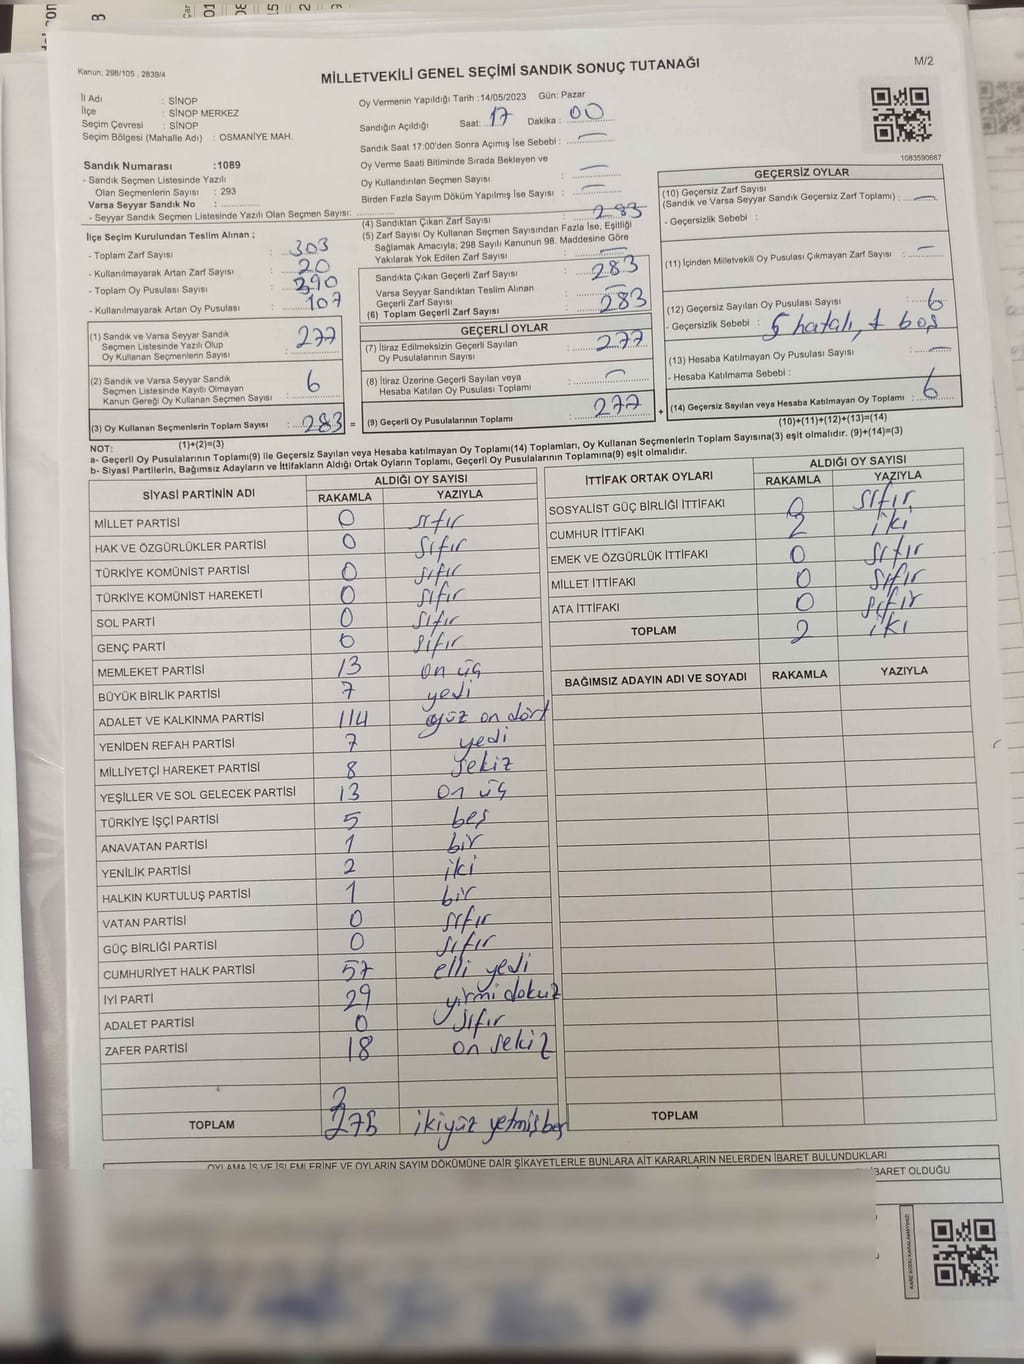 Kanun; 298/105 , 2839/4
M/2
MİLLETVEKİLİ GENEL SEÇİMİ SANDIK SONUÇ TUTANAĞI
İl Adı : SİNOP
İlçe : SİNOP MERKEZ
Seçim Çevresi : SİNOP
Seçim Bölgesi (Mahalle Adı) : OSMANİYE MAH.
Oy Vermenin Yapıldığı Tarih :14/05/2023 Gün: Pazar
Sandığın Açıldığı Saat: 17 Dakika : 00
Sandık Saat 17:00'den Sonra Açımış İse Sebebi : —
Oy Verme Saati Bitiminde Sırada Bekleyen ve
Oy Kullandırılan Seçmen Sayısı : —
Birden Fazla Sayım Döküm Yapılmış İse Sayısı : —
1083590667
Sandık Numarası :1089
- Sandık Seçmen Listesinde Yazılı
Olan Seçmenlerin Sayısı : 293
Varsa Seyyar Sandık No :
- Seyyar Sandık Seçmen Listesinde Yazılı Olan Seçmen Sayısı:
İlçe Seçim Kurulundan Teslim Alınan ;
- Toplam Zarf Sayısı : 303
- Kullanılmayarak Artan Zarf Sayısı : 20
- Toplam Oy Pusulası Sayısı : 390
- Kullanılmayarak Artan Oy Pusulası : 107
(1) Sandık ve Varsa Seyyar Sandık
Seçmen Listesinde Yazılı Olup
Oy Kullanan Seçmenlerin Sayısı : 277
(2) Sandık ve Varsa Seyyar Sandık
Seçmen Listesinde Kayıtlı Olmayan
Kanun Gereği Oy Kullanan Seçmen Sayısı : 6
(3) Oy Kullanan Seçmenlerin Toplam Sayısı : 283 =
(1)+(2)=(3)
(4) Sandıktan Çıkan Zarf Sayısı : 283
(5) Zarf Sayısı Oy Kullanan Seçmen Sayısından Fazla İse, Eşitliği
Sağlamak Amacıyla; 298 Sayılı Kanunun 98. Maddesine Göre
Yakılarak Yok Edilen Zarf Sayısı : —
Sandıkta Çıkan Geçerli Zarf Sayısı : 283
Varsa Seyyar Sandıktan Teslim Alınan
Geçerli Zarf Sayısı : —
(6) Toplam Geçerli Zarf Sayısı : 283
GEÇERLİ OYLAR
(7) İtiraz Edilmeksizin Geçerli Sayılan
Oy Pusulalarının Sayısı : 277
(8) İtiraz Üzerine Geçerli Sayılan veya
Hesaba Katılan Oy Pusulası Toplamı : —
(9) Geçerli Oy Pusulalarının Toplamı : 277 +
GEÇERSİZ OYLAR
(10) Geçersiz Zarf Sayısı
(Sandık ve Varsa Seyyar Sandık Geçersiz Zarf Toplamı) : —
- Geçersizlik Sebebi :
(11) İçinden Milletvekili Oy Pusulası Çıkmayan Zarf Sayısı : —
(12) Geçersiz Sayılan Oy Pusulası Sayısı : 6
- Geçersizlik Sebebi : 5 hatalı, 1 boş
(13) Hesaba Katılmayan Oy Pusulası Sayısı : —
- Hesaba Katılmama Sebebi :
(14) Geçersiz Sayılan veya Hesaba Katılmayan Oy Toplamı : 6
(10)+(11)+(12)+(13)=(14)
NOT:
a- Geçerli Oy Pusulalarının Toplamı(9) ile Geçersiz Sayılan veya Hesaba katılmayan Oy Toplamı(14) Toplamları, Oy Kullanan Seçmenlerin Toplam Sayısına(3) eşit olmalıdır. (9)+(14)=(3)
b- Siyasi Partilerin, Bağımsız Adayların ve İttifakların Aldığı Ortak Oyların Toplamı, Geçerli Oy Pusulalarının Toplamına(9) eşit olmalıdır.
SİYASİ PARTİNİN ADI ALDIĞI OY SAYISI
RAKAMLA YAZIYLA
MİLLET PARTİSİ 0 sıfır
HAK VE ÖZGÜRLÜKLER PARTİSİ 0 sıfır
TÜRKİYE KOMÜNİST PARTİSİ 0 sıfır
TÜRKİYE KOMÜNİST HAREKETİ 0 sıfır
SOL PARTİ 0 sıfır
GENÇ PARTİ 0 sıfır
MEMLEKET PARTİSİ 13 on üç
BÜYÜK BİRLİK PARTİSİ 7 yedi
ADALET VE KALKINMA PARTİSİ 114 yüz on dört
YENİDEN REFAH PARTİSİ 7 yedi
MİLLİYETÇİ HAREKET PARTİSİ 8 sekiz
YEŞİLLER VE SOL GELECEK PARTİSİ 13 on üç
TÜRKİYE İŞÇİ PARTİSİ 5 beş
ANAVATAN PARTİSİ 1 bir
YENİLİK PARTİSİ 2 iki
HALKIN KURTULUŞ PARTİSİ 1 bir
VATAN PARTİSİ 0 sıfır
GÜÇ BİRLİĞİ PARTİSİ 0 sıfır
CUMHURİYET HALK PARTİSİ 57 elli yedi
İYİ PARTİ 29 yirmi dokuz
ADALET PARTİSİ 0 sıfır
ZAFER PARTİSİ 18 on sekiz
TOPLAM 275 ikiyüz yetmişbeş
İTTİFAK ORTAK OYLARI ALDIĞI OY SAYISI
RAKAMLA YAZIYLA
SOSYALİST GÜÇ BİRLİĞİ İTTİFAKI 0 sıfır
CUMHUR İTTİFAKI 2 iki
EMEK VE ÖZGÜRLÜK İTTİFAKI 0 sıfır
MİLLET İTTİFAKI 0 sıfır
ATA İTTİFAKI 0 sıfır
TOPLAM 2 iki
BAĞIMSIZ ADAYIN ADI VE SOYADI RAKAMLA YAZIYLA
TOPLAM
OYLAMA İŞ VE İŞLEMLERİNE VE OYLARIN SAYIM DÖKÜMÜNE DAİR ŞİKAYETLERLE BUNLARA AİT KARARLARIN NELERDEN İBARET BULUNDUKLARI
İBARET OLDUĞU
KARE KODU KARALAMAYINIZ!